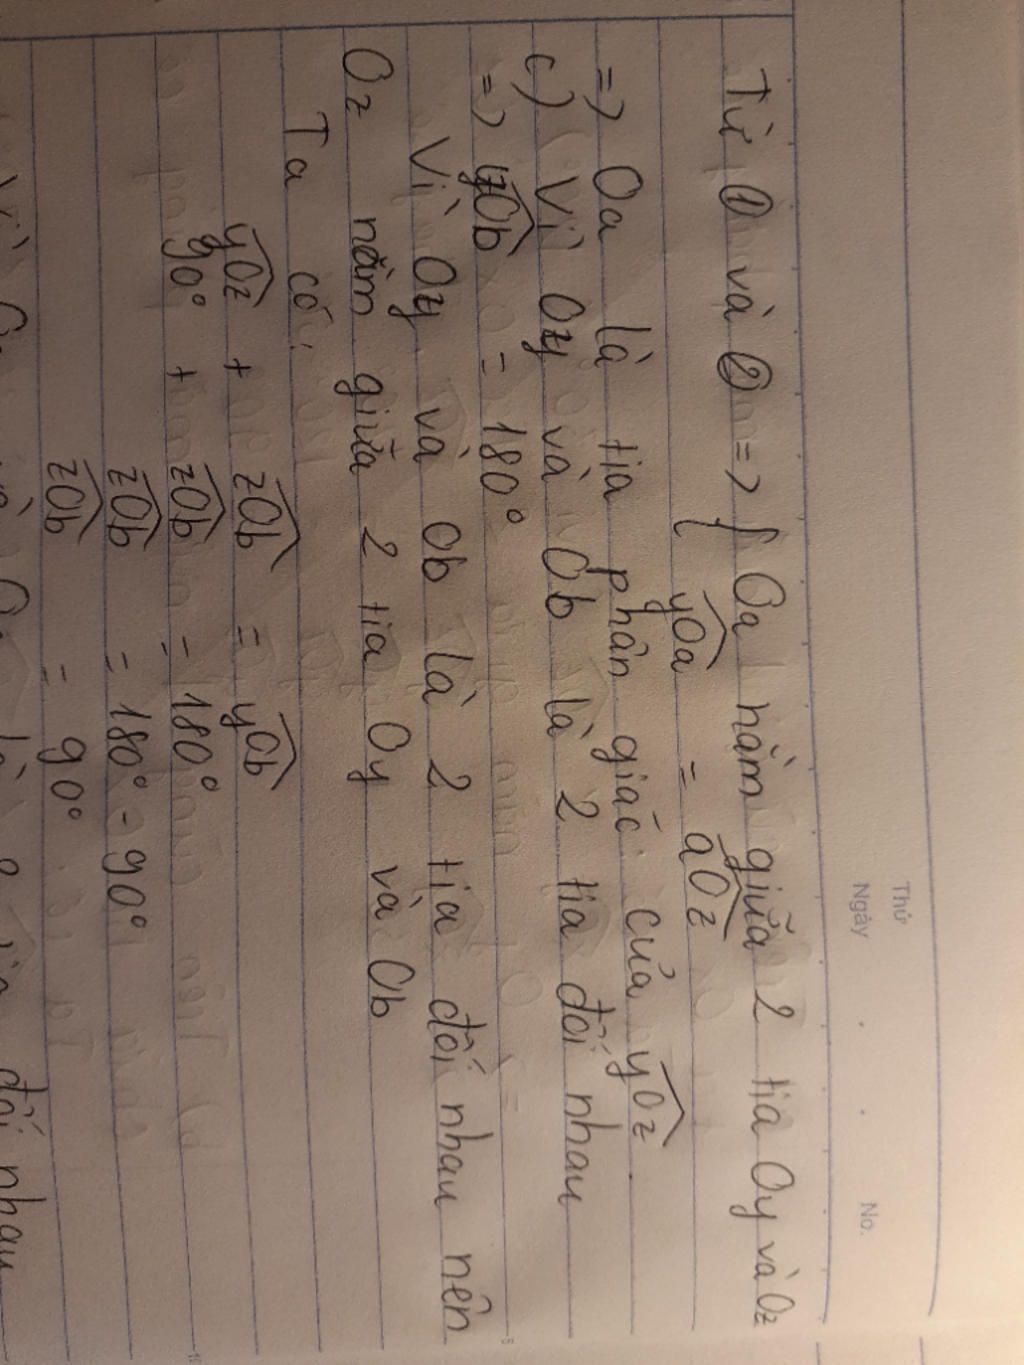 Thứ
Ngày . . No.
Từ ① và ② => { Oa nằm giữa 2 tia Oy và Oz
yOa = aOz
=> Oa là tia phân giác của yOz.
c) Vì Oy và Ob là 2 tia đối nhau
=> yOb = 180°
Vì Oy và Ob là 2 tia đối nhau nên
Oz nằm giữa 2 tia Oy và Ob
Ta có:
yOz + zOb = yOb
90° + zOb = 180°
zOb = 180° - 90°
zOb = 90°
đối nhau